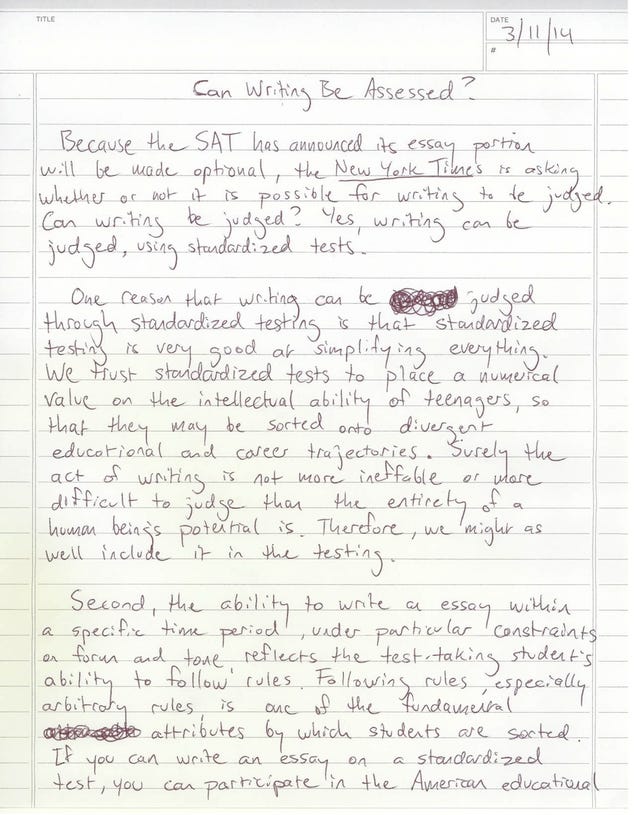 TITLE
DATE
3/11/14
#
Can Writing Be Assessed?
Because the SAT has announced its essay portion
will be made optional, the New York Times is asking
whether or not it is possible for writing to be judged.
Can writing be judged? Yes, writing can be
judged, using standardized tests.
One reason that writing can be judged
through standardized testing is that standardized
testing is very good at simplifying everything.
We trust standardized tests to place a numerical
value on the intellectual ability of teenagers, so
that they may be sorted onto divergent
educational and career trajectories. Surely the
act of writing is not more ineffable or more
difficult to judge than the entirety of a
human being's potential is. Therefore, we might as
well include it in the testing.
Second, the ability to write a essay within
a specific time period, under particular constraints
on form and tone, reflects the test-taking student's
ability to follow rules. Following rules, especially
arbitrary rules, is one of the fundamental
attributes by which students are sorted.
If you can write an essay on a standardized
test, you can participate in the American educational